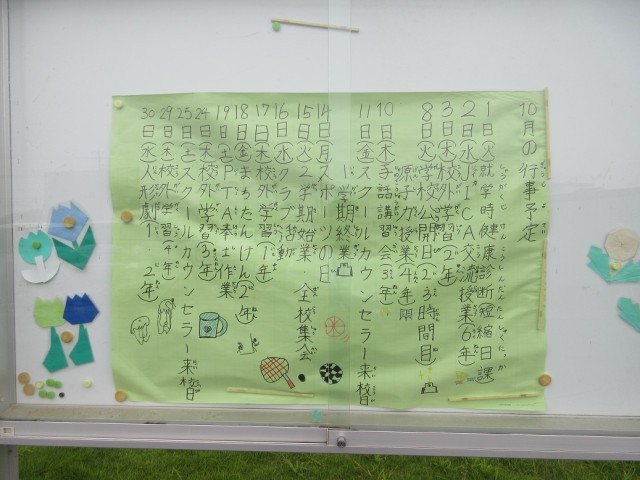 10月の行事予定
1日(火)就学時健康診断短縮日課
2日(水)JICA交流授業(6年)
3日(木)校外学習(2年)
8日(火)学校公開日(2・3時間目)
原子力授業(4年)
10日(木)手話講習会(3年)
11日(金)スクールカウンセラー来校日
1学期終業
14日(月)スポーツの日
15日(火)2学期始業・全校集会
16日(水)クラブ活動
17日(木)校外学習(1年)
18日(金)まちたんけん(2年)
19日(土)PTA奉仕作業
24日(木)校外学習(3年)
25日(金)スクールカウンセラー来校日
29日(火)校外学習(4年)
30日(水)人形劇(1、2年)